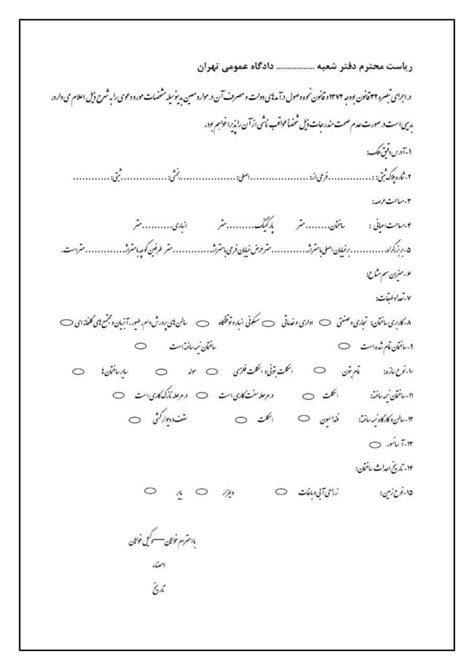 ریاست محترم دفتر شعبه ................. دادگاه عمومی تهران
در اجرای تبصره ۳۲ قانون بودجه ۱۳۷۲ و قانون نحوه وصول درآمدهای دولت و مصرف آن در موارد معین بدینوسیله مشخصات مورد دعوی را به شرح ذیل اعلام می دارد.
بدیهی است در صورت عدم صحت مندرجات ذیل شخصاً عواقب ناشی از آن را پذیرا خواهم بود.
۱-آدرس دقیق ملک:
۲-شماره پلاک ثبتی: ............فرعی از:............اصلی:............بخشی:............ثبتی:............
۳-مساحت عرصه:
۴-مساحت اعیانی : ساختمان.........متر پارکینگ.........متر انباری.........متر
۵-بر بزرگراه............بر خیابان اصلی با متراژ............متر عرض خیابان فرعی با متراژ............متر طرفین کوچه با متراژ............متر است.
۶-میزان سهم مشاع:
۷-تعداد طبقات:
۸-کاربری ساختمان: تجاری و صنعتی اداری و خدماتی مسکونی انبار و توقفگاه سالن های پرورش دام، طیور، آبزیان و مجتمع های گلخانه ای
۹-ساختمان تمام شده است ساختمان نیمه ساخته است
۱۰-نوع سازه: تمام بتون اسکلت بتونی و اسکلت فلزی سوله سایر ساختمان ها
۱۱-ساختمان نیمه ساخته: اسکلت در مرحله سفت کاری است در مرحله نازک کاری است
۱۲-سالن و کارگاه نیمه ساخته: فنداسیون اسکلت سقف و دیوار کشی
۱۳-آسانسور
۱۴-تاریخ احداث ساختمان:
۱۵-نوع زمین: زراعی آبی و باغات دیمزار بایر
با احترام خواهان—وکیل خواهان
امضاء
تاریخ